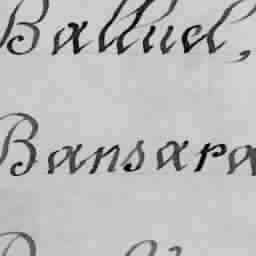 Balluel,
Bansara